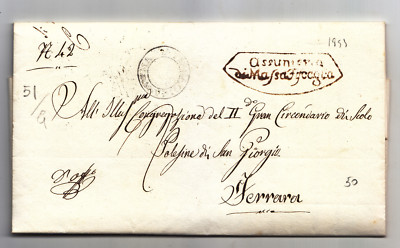 N 42
1833
Assunteria
di Massa Fiscaglia
51/9
All' Illma Congregazione del II° Gran Circondario di Scolo
Polesine di San Giorgio
Ferrara
50